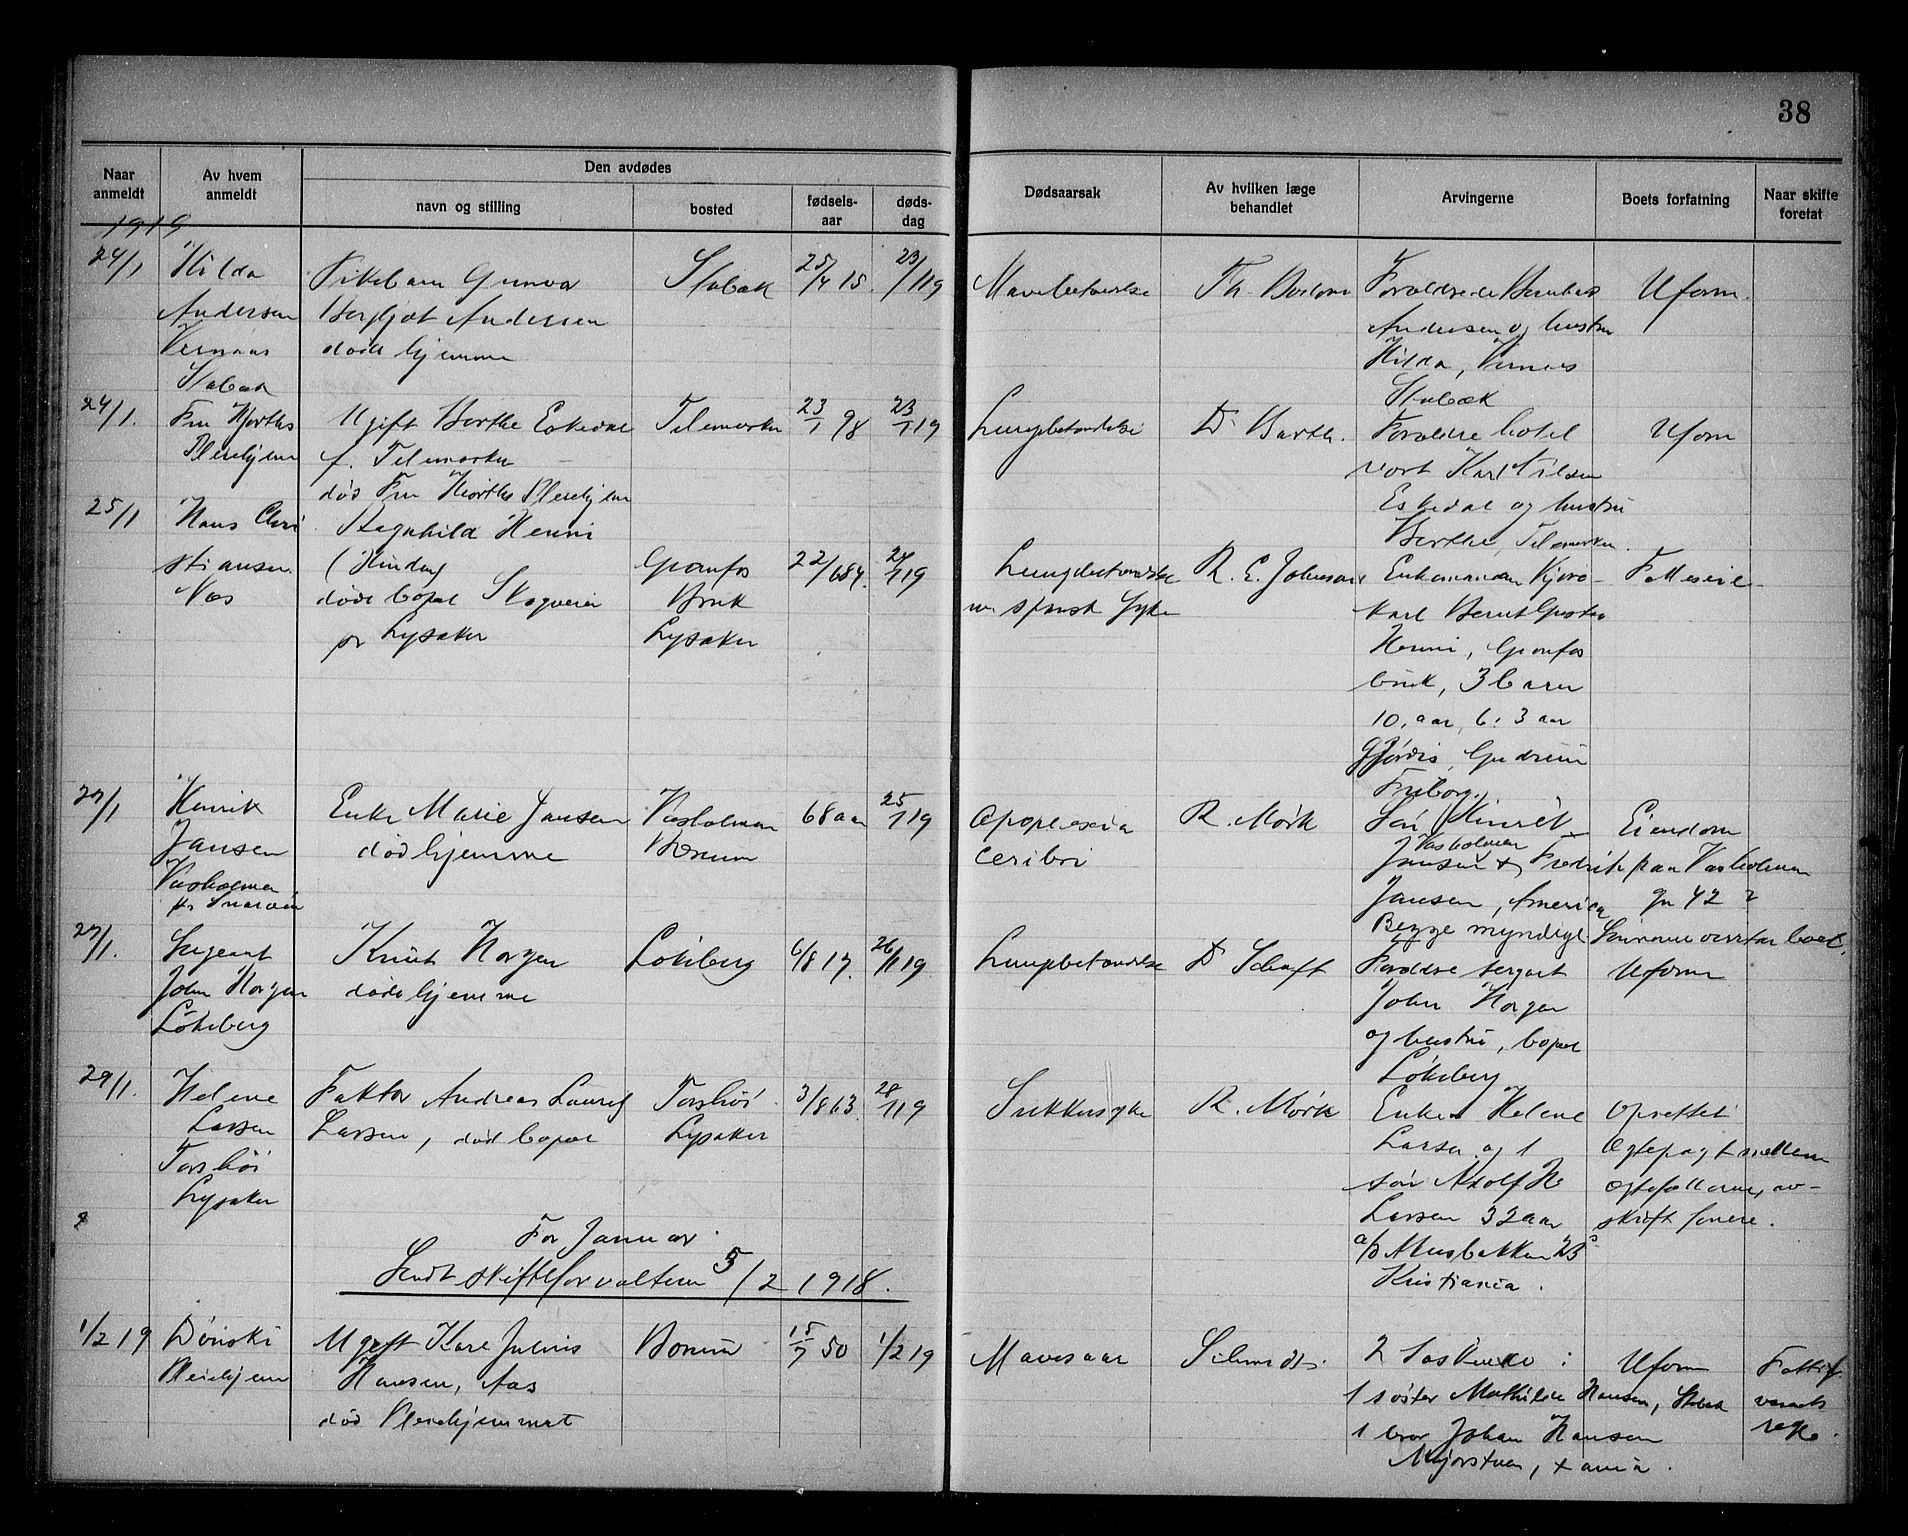 38
Naar anmeldt
Av hvem anmeldt
Den avdødes
navn og stilling
bosted
fødselsaar
dødsdag
Dødsaarsak
Av hvilken læge behandlet
Arvingerne
Boets forfatning
Naar skifte foretat
1919
24/1
Hilda
Andersen
Stabæk
Pikebarn Gunvor
Bergljot Andersen
døde hjemme
Stabæk
25/4 15
23/1 19
Mavebetændelse
Th.
Forældre
Andersen og hustru
Hilda,
Stabæk
Uform.
24/1.
Fru Hjorths
Pleiehjem
Ugift Berthe Eskedal
f. Telemarken
død Fru Hjorths Pleiehjem
Telemarken
23/1 98
23/1 19
Lungebetændelse
Dr Barth.
Forældre
Karl Nilsen
Eskedal og hustru
Berthe, Telemarken.
Uform
25/1
Hans Chri
stiansen
Næs
Ragnhild Henni
døde bopæl Skogveien
pr Lysaker
Granfos
Bruk
Lysaker
22/6 84.
24/1 19
Lungebetændelse
m. spansk syke
R. E. Johnson
Enkemanden Kjøre-
karl Bernt Gustav
Henni, Granfos
bruk, 3 barn
10 aar, 6 : 3 aar
Gudrun
Fælleseie
27/1
Henrik
Jansen
Væsholmen
pr Snarøen
Enke Marie Jansen
død hjemme
Væsholmen
Bærum
68 aar
25/1 19
Apoplexia
ceribri
R. Mørk
Søn Henrik
Væsholmen
Jansen & Fredrik
Jansen, Amerika
Begge myndige
Eiendom
paa Væsholmen
gn 42 ?
Sønnerne overtar boet.
27/1.
Sergeant
John Horgen
Løkeberg
Knut Horgen
døde hjemme
Løkeberg
6/8 17.
26/1 19
Lungebetændelse
Dr
Forældre sergent
John Horgen
og hustru, bopæl
Løkeberg
Uform
29/1.
Helene
Larsen
Torshøi
Lysaker
Faktor Andreas Lauritz
Larsen, død bopæl
Torshøi
Lysaker
3/8 63.
28/1 19
Sukkersyke
R. Mørk
Enken Helene
Larsen og 1
søn Adolf H
Larsen 32 aar
Akersbakken 23
Kristiania.
Oprettet
Ægtepagt mellem
ægtefællerne, av-
skrift senere.
For Januar.
Sendt skifteforvalteren 5/2 1918.
1/2 19
Dønski
Pleiehjem
Ugift Karl Julius
Hansen, Aas
død Pleiehjemmet
Bærum
15/7 50
1/2 19
Mavesaar
Schmidt.
2 Søskende :
1 søster Mathilde Hansen, Stabæk
1 bror Johan Hansen
Majorstuen, Xania.
Uform
Fattig
væsenets